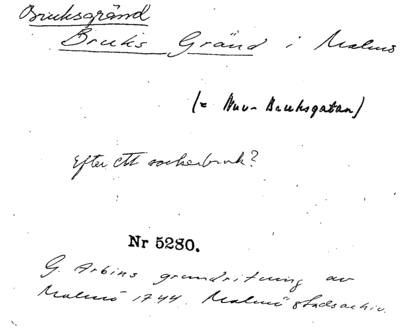 Bruksgränd
Bruks Gränd i Malmö
(= nuv. Bruksgatan)
Efter ett sockerbruk?
Nr 5280.
G. Arbins grundritning av
Malmö 1744. Malmö stadsarkiv.